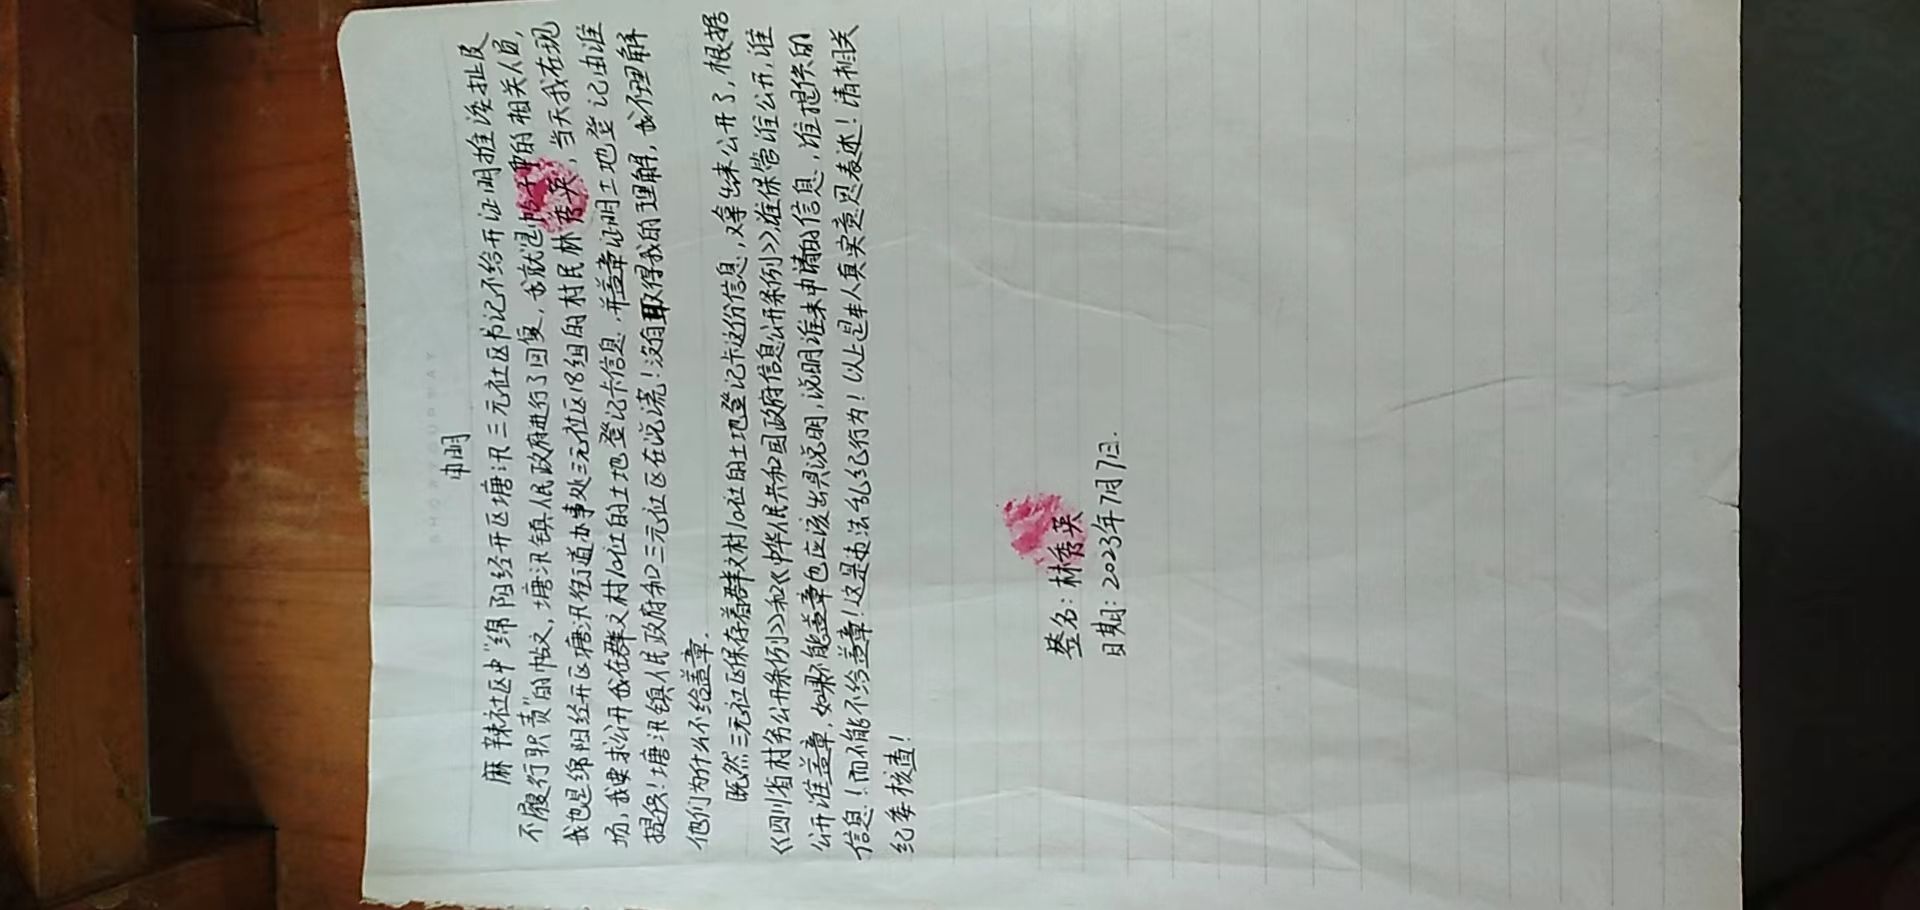 申明
麻辣社区中“绵阳经开区塘汛三元社区书记不给开证明推诿扯皮
不履行职责”的帖文，塘汛镇人民政府进行了回复，我就是帖子里的相关人员，
我也是绵阳经开区塘汛街道办事处三元社区18组的村民林秀英，当天我在现
场，我要求公开我在群文村10社的土地登记卡信息，并盖章证明土地登记由谁
提供！塘汛镇人民政府和三元社区在说谎！没有取得我的理解，我不理解
他们为什么不给盖章．
既然三元社区保存着群文村10社的土地登记卡这份信息，又拿出来公开了，根据
《四川省村务公开条例》和《中华人民共和国政府信息公开条例》，谁保管谁公开，谁
公开谁盖章，如果不能盖章也应该出具说明，说明谁来申请的信息，谁提供的
信息！而不能不给盖章！这是违法乱纪行为！以上是本人真实意思表述！请相关
纪委核查！
签名：林秀英
日期：2023年7月7日．